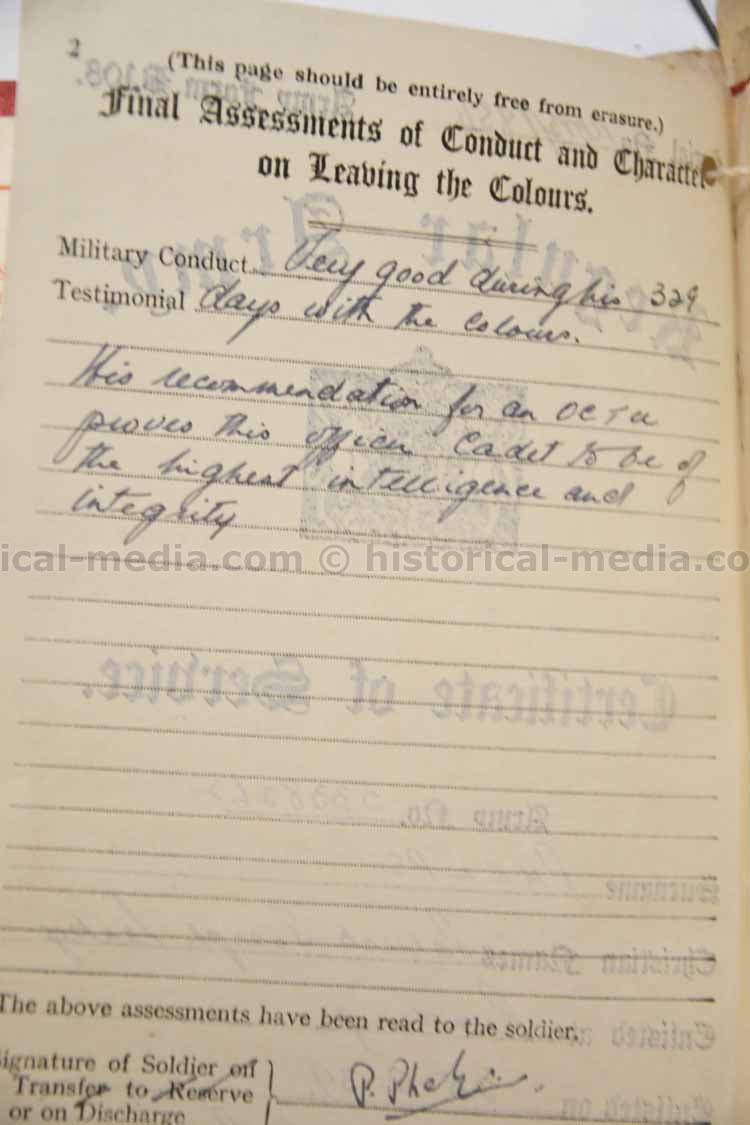 2
(This page should be entirely free from erasure.)
Final Assessments of Conduct and Character
on Leaving the Colours.
Military Conduct Very good during his 329
Testimonial days with the colours.
His recommendation for an OCTU
proves this officer Cadet to be of
the highest intelligence and
integrity
ical-media.com © historical-media.co
The above assessments have been read to the soldier.
Signature of Soldier on
Transfer to Reserve
or on Discharge
Army Form B108.
Regular Army
Certificate of Service.
Army No.
Surname
Christian Names
Enlisted
Enlisted on